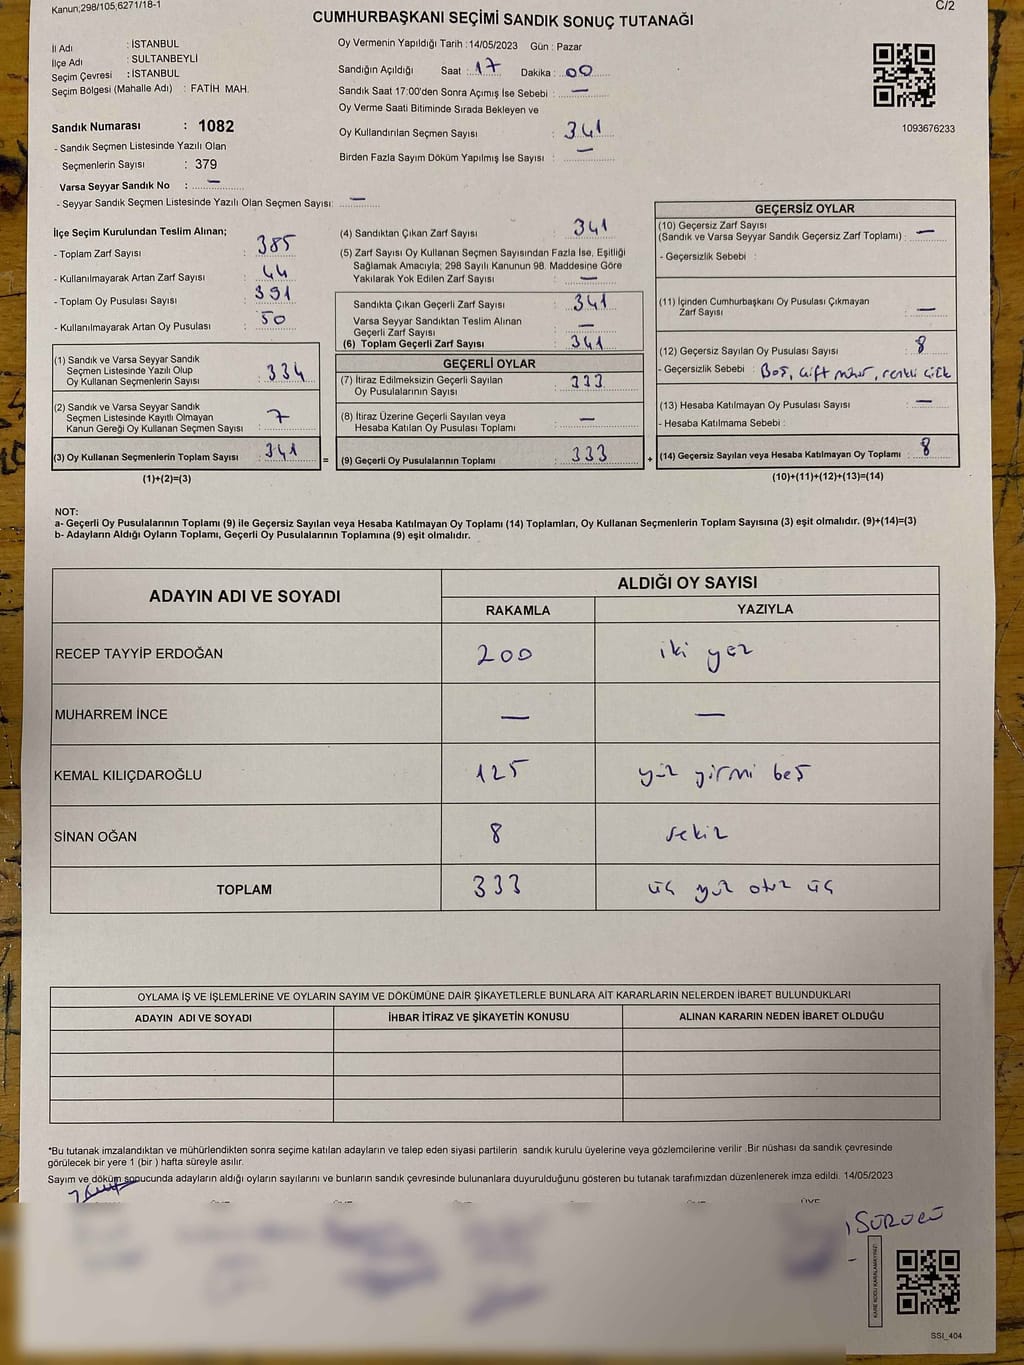 Kanun;298/105,6271/18-1
C/2
CUMHURBAŞKANI SEÇİMİ SANDIK SONUÇ TUTANAĞI
İl Adı : İSTANBUL
İlçe Adı : SULTANBEYLİ
Seçim Çevresi : İSTANBUL
Seçim Bölgesi (Mahalle Adı) : FATİH MAH.
Sandık Numarası : 1082
- Sandık Seçmen Listesinde Yazılı Olan
Seçmenlerin Sayısı : 379
Varsa Seyyar Sandık No : —
- Seyyar Sandık Seçmen Listesinde Yazılı Olan Seçmen Sayısı: —
Oy Vermenin Yapıldığı Tarih : 14/05/2023 Gün : Pazar
Sandığın Açıldığı Saat : 17 Dakika : 00
Sandık Saat 17:00'den Sonra Açımış İse Sebebi : —
Oy Verme Saati Bitiminde Sırada Bekleyen ve
Oy Kullandırılan Seçmen Sayısı : 341
Birden Fazla Sayım Döküm Yapılmış İse Sayısı : —
1093676233
İlçe Seçim Kurulundan Teslim Alınan;
- Toplam Zarf Sayısı : 385
- Kullanılmayarak Artan Zarf Sayısı : 44
- Toplam Oy Pusulası Sayısı : 391
- Kullanılmayarak Artan Oy Pusulası : 50
(1) Sandık ve Varsa Seyyar Sandık
Seçmen Listesinde Yazılı Olup
Oy Kullanan Seçmenlerin Sayısı : 334
(2) Sandık ve Varsa Seyyar Sandık
Seçmen Listesinde Kayıtlı Olmayan
Kanun Gereği Oy Kullanan Seçmen Sayısı : 7
(3) Oy Kullanan Seçmenlerin Toplam Sayısı : 341
(1)+(2)=(3)
(4) Sandıktan Çıkan Zarf Sayısı : 341
(5) Zarf Sayısı Oy Kullanan Seçmen Sayısından Fazla İse, Eşitliği
Sağlamak Amacıyla; 298 Sayılı Kanunun 98. Maddesine Göre
Yakılarak Yok Edilen Zarf Sayısı : —
Sandıkta Çıkan Geçerli Zarf Sayısı : 341
Varsa Seyyar Sandıktan Teslim Alınan
Geçerli Zarf Sayısı : —
(6) Toplam Geçerli Zarf Sayısı : 341
GEÇERLİ OYLAR
(7) İtiraz Edilmeksizin Geçerli Sayılan
Oy Pusulalarının Sayısı : 333
(8) İtiraz Üzerine Geçerli Sayılan veya
Hesaba Katılan Oy Pusulası Toplamı : —
= (9) Geçerli Oy Pusulalarının Toplamı : 333
GEÇERSİZ OYLAR
(10) Geçersiz Zarf Sayısı
(Sandık ve Varsa Seyyar Sandık Geçersiz Zarf Toplamı) : —
- Geçersizlik Sebebi :
(11) İçinden Cumhurbaşkanı Oy Pusulası Çıkmayan
Zarf Sayısı : —
(12) Geçersiz Sayılan Oy Pusulası Sayısı : 8
- Geçersizlik Sebebi : Boş, çift mühür, renkli
(13) Hesaba Katılmayan Oy Pusulası Sayısı : —
- Hesaba Katılmama Sebebi :
+ (14) Geçersiz Sayılan veya Hesaba Katılmayan Oy Toplamı : 8
(10)+(11)+(12)+(13)=(14)
NOT:
a- Geçerli Oy Pusulalarının Toplamı (9) ile Geçersiz Sayılan veya Hesaba Katılmayan Oy Toplamı (14) Toplamları, Oy Kullanan Seçmenlerin Toplam Sayısına (3) eşit olmalıdır. (9)+(14)=(3)
b- Adayların Aldığı Oyların Toplamı, Geçerli Oy Pusulalarının Toplamına (9) eşit olmalıdır.
ADAYIN ADI VE SOYADI
ALDIĞI OY SAYISI
RAKAMLA YAZIYLA
RECEP TAYYİP ERDOĞAN 200 iki yüz
MUHARREM İNCE — —
KEMAL KILIÇDAROĞLU 125 yüz yirmi beş
SİNAN OĞAN 8 sekiz
TOPLAM 333 üç yüz otuz üç
OYLAMA İŞ VE İŞLEMLERİNE VE OYLARIN SAYIM VE DÖKÜMÜNE DAİR ŞİKAYETLERLE BUNLARA AİT KARARLARIN NELERDEN İBARET BULUNDUKLARI
ADAYIN ADI VE SOYADI İHBAR İTİRAZ VE ŞİKAYETİN KONUSU ALINAN KARARIN NEDEN İBARET OLDUĞU
*Bu tutanak imzalandıktan ve mühürlendikten sonra seçime katılan adayların ve talep eden siyasi partilerin sandık kurulu üyelerine veya gözlemcilerine verilir .Bir nüshası da sandık çevresinde
görülecek bir yere 1 (bir ) hafta süreyle asılır.
Sayım ve döküm sonucunda adayların aldığı oyların sayılarını ve bunların sandık çevresinde bulunanlara duyurulduğunu gösteren bu tutanak tarafımızdan düzenlenerek imza edildi. 14/05/2023
SÜRÜCÜ
KARE KODU KARALAMAYINIZ!
SSI_404